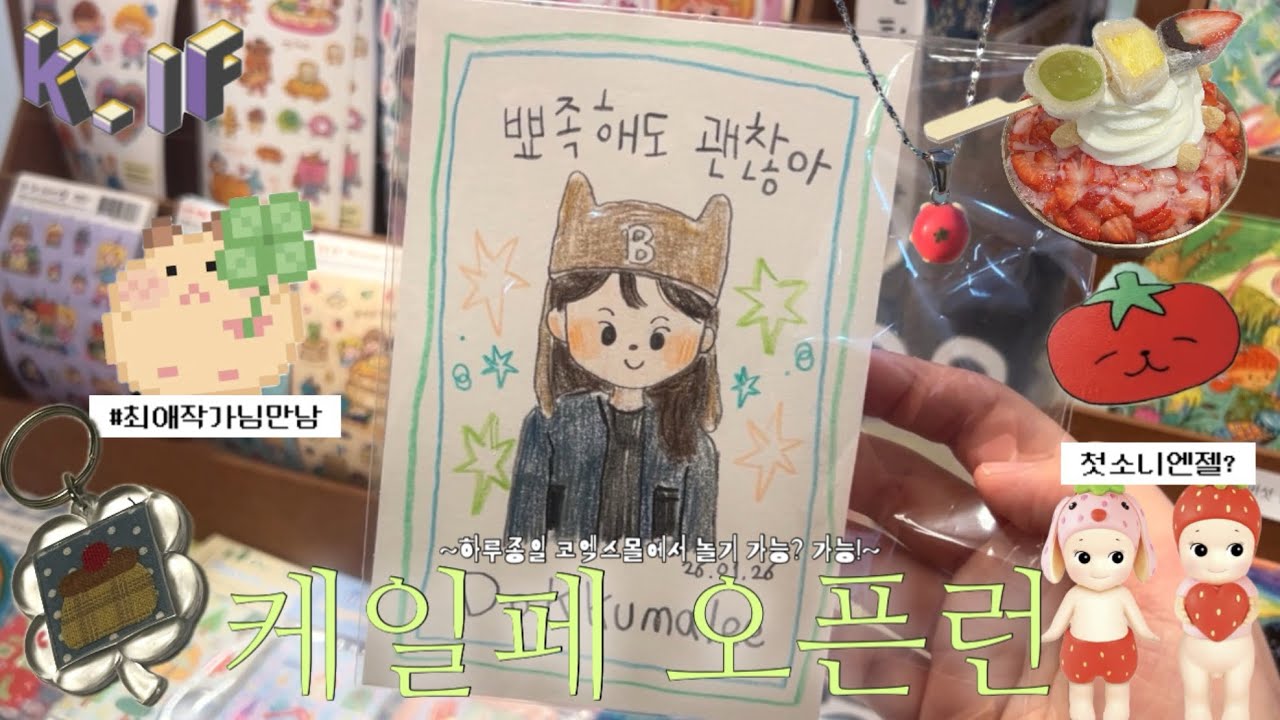 K.IF
뾰족해도 괜찮아
B
#최애작가님만남
첫소니엔젤?
~하루종일 코엑스몰에서 놀기 가능? 가능!~
26.01.26
케일페 오픈런